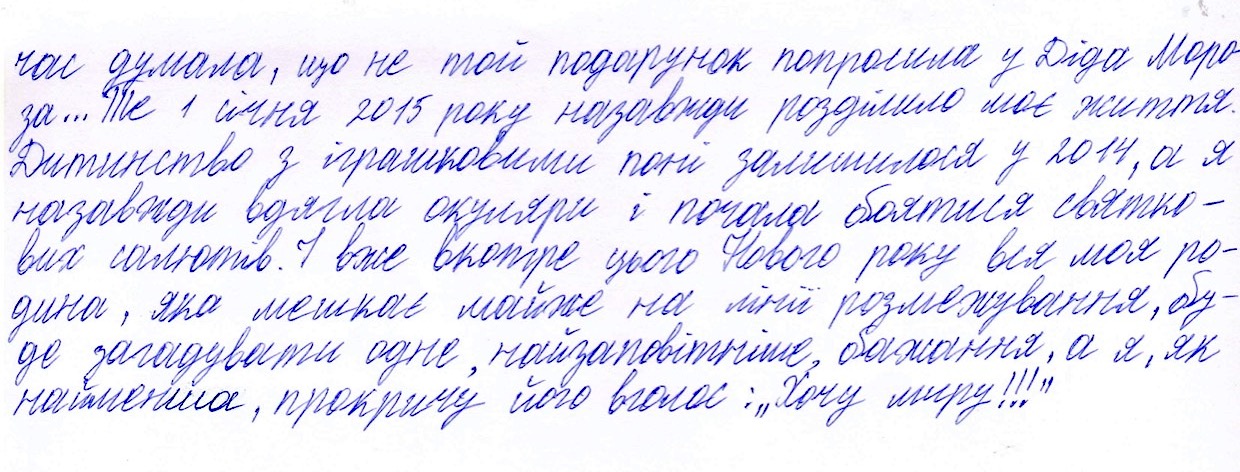 час думала, що не той подарунок попросила у Діда Моро
за... Те 1 січня 2015 року назавжди розділило моє життя.
Дитинство з іграшковими поні залишилося у 2014, а я
назавжди вдягла окуляри і почала боятися святко-
вих салютів. І вже вкотре цього Нового року вся моя ро-
дина, яка мешкає майже на лінії розмежування, бу-
де загадувати одне, найзаповітніше, бажання, а я, як
найменша, прокричу його вголос: „Хочу миру!!!"